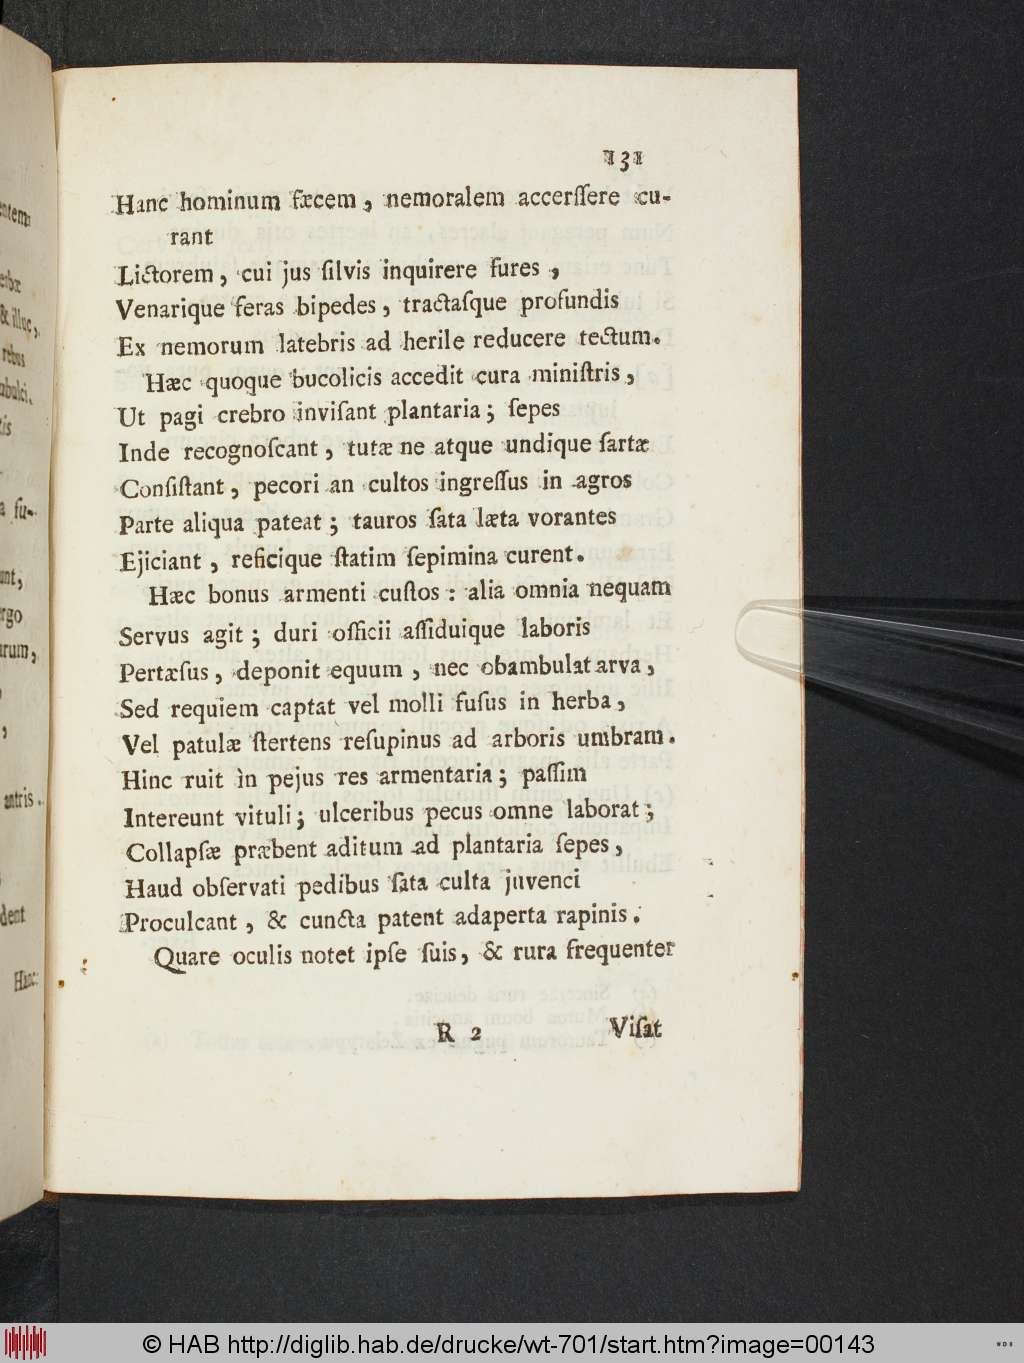 131
Hanc hominum fæcem, nemoralem accerſſere cu-
rant
Lictorem, cui jus ſilvis inquirere fures,
Venarique feras bipedes, tractaſque profundis
Ex nemorum latebris ad herile reducere tectum.
Hæc quoque bucolicis accedit cura miniſtris,
Ut pagi crebro inviſant plantaria; ſepes
Inde recognoſcant, tutæ ne atque undique ſartæ
Conſiſtant, pecori an cultos ingreſſus in agros
Parte aliqua pateat; tauros ſata læta vorantes
Ejiciant, reficique ſtatim ſepimina curent.
Hæc bonus armenti cuſtos: alia omnia nequam
Servus agit; duri officii aſſiduique laboris
Pertæſus, deponit equum, nec obambulat arva,
Sed requiem captat vel molli fuſus in herba,
Vel patulæ ſtertens reſupinus ad arboris umbram.
Hinc ruit in pejus res armentaria; paſſim
Intereunt vituli; ulceribus pecus omne laborat;
Collapſæ præbent aditum ad plantaria ſepes,
Haud obſervati pedibus ſata culta juvenci
Proculcant, & cuncta patent adaperta rapinis.
Quare oculis notet ipſe ſuis, & rura frequenter
R 2 Viſat
© HAB http://diglib.hab.de/drucke/wt-701/start.htm?image=00143